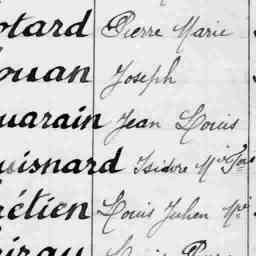 otard Pierre Marie
ouan Joseph
uarain Jean Louis
uisnard Isidore Mie
rétien Louis Julien Mie